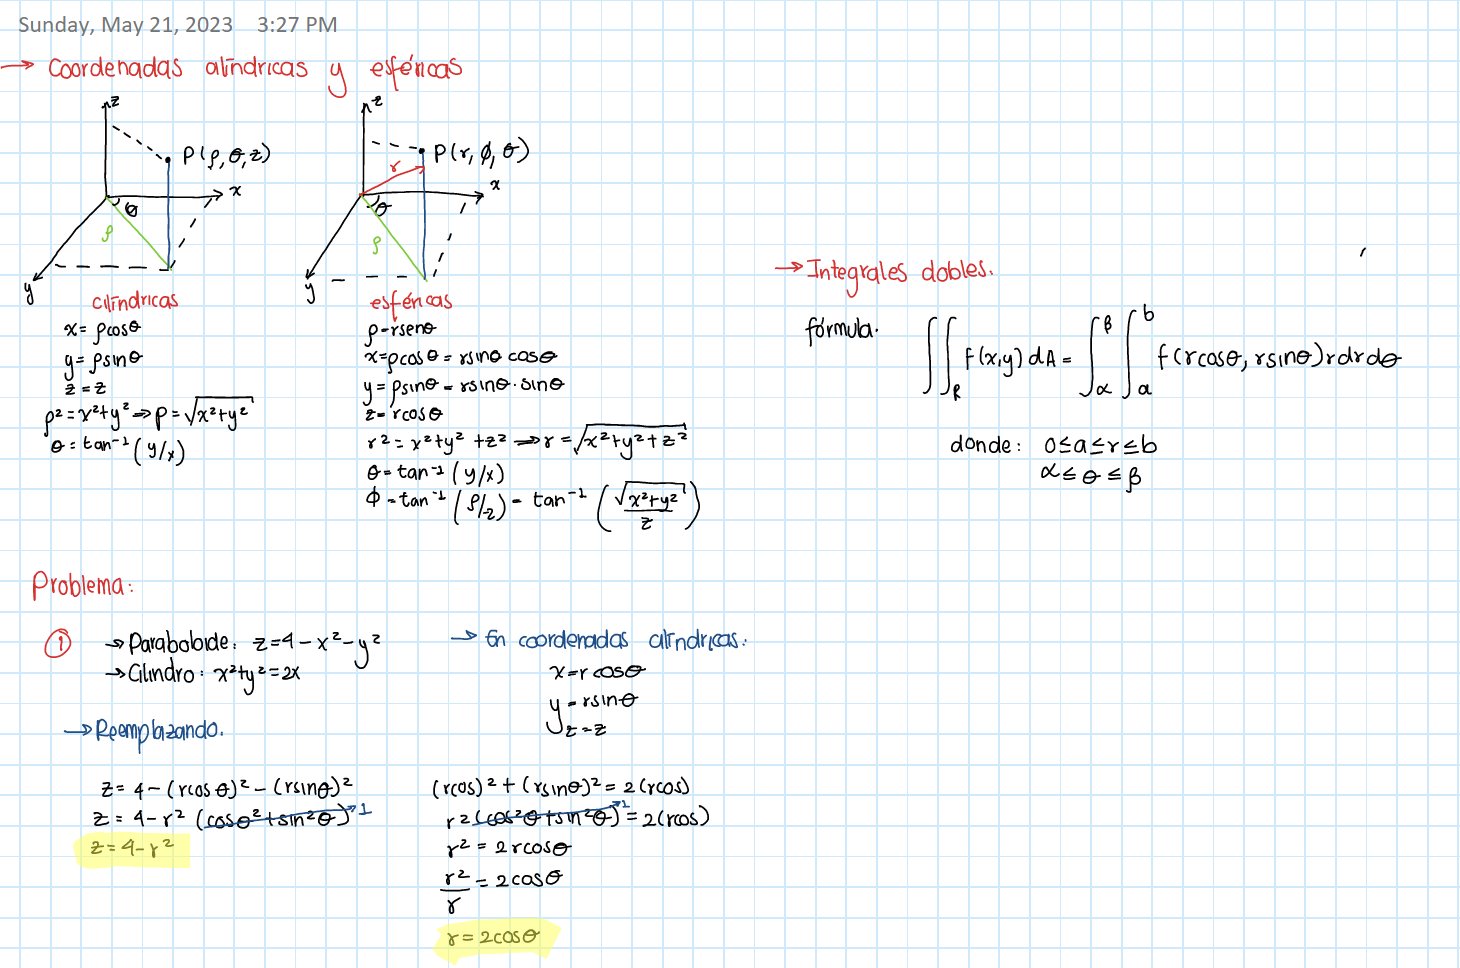 Sunday, May 21, 2023 3:27 PM
→ Coordenadas cilíndricas y esféricas
z
P(ρ, θ, z)
x
θ
ρ
y
cilíndricas
x = ρcosθ
y = ρsinθ
z = z
ρ² = x²+y² ⇒ ρ = √x²+y²
θ = tan⁻¹ (y/x)
z
P(r, ϕ, θ)
r
x
θ
ρ
y
esféricas
ρ = rsenθ
x = ρcosθ = rsinθ cosθ
y = ρsinθ = rsinθ · sinθ
z = rcosθ
r² = x²+y²+z² ⇒ r = √x²+y²+z²
θ = tan⁻¹ (y/x)
ϕ = tan⁻¹ (ρ/z) = tan⁻¹ (√x²+y² / z)
→ Integrales dobles.
fórmula.
∬_R f(x,y) dA = ∫_α^β ∫_a^b f(rcosθ, rsinθ) r dr dθ
donde: 0≤a≤r≤b
α≤θ≤β
Problema:
① → Paraboloide: z=4-x²-y²
→ Cilindro: x²+y²=2x
→ En coordenadas cilíndricas:
x = r cosθ
y = rsinθ
z = z
→ Reemplazando.
z = 4 - (rcosθ)² - (rsinθ)²
z = 4 - r² (cosθ² + sin²θ) → 1
z = 4 - r²
(rcos)² + (rsinθ)² = 2(rcos)
r² (cos²θ + sin²θ) → 1 = 2(rcos)
r² = 2rcosθ
r²/r = 2cosθ
r = 2cosθ